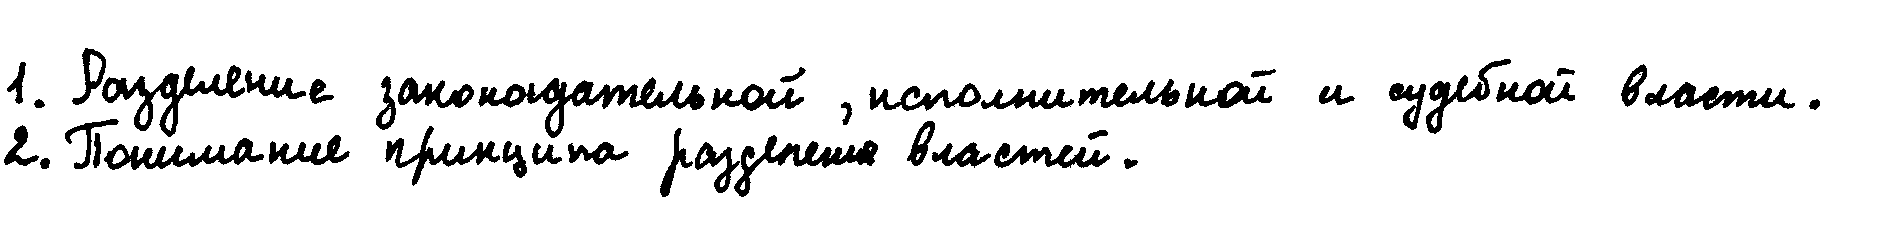 1. Разделение законодательной, исполнительной и судебной власти.
2. Понимание принципа разделения властей.